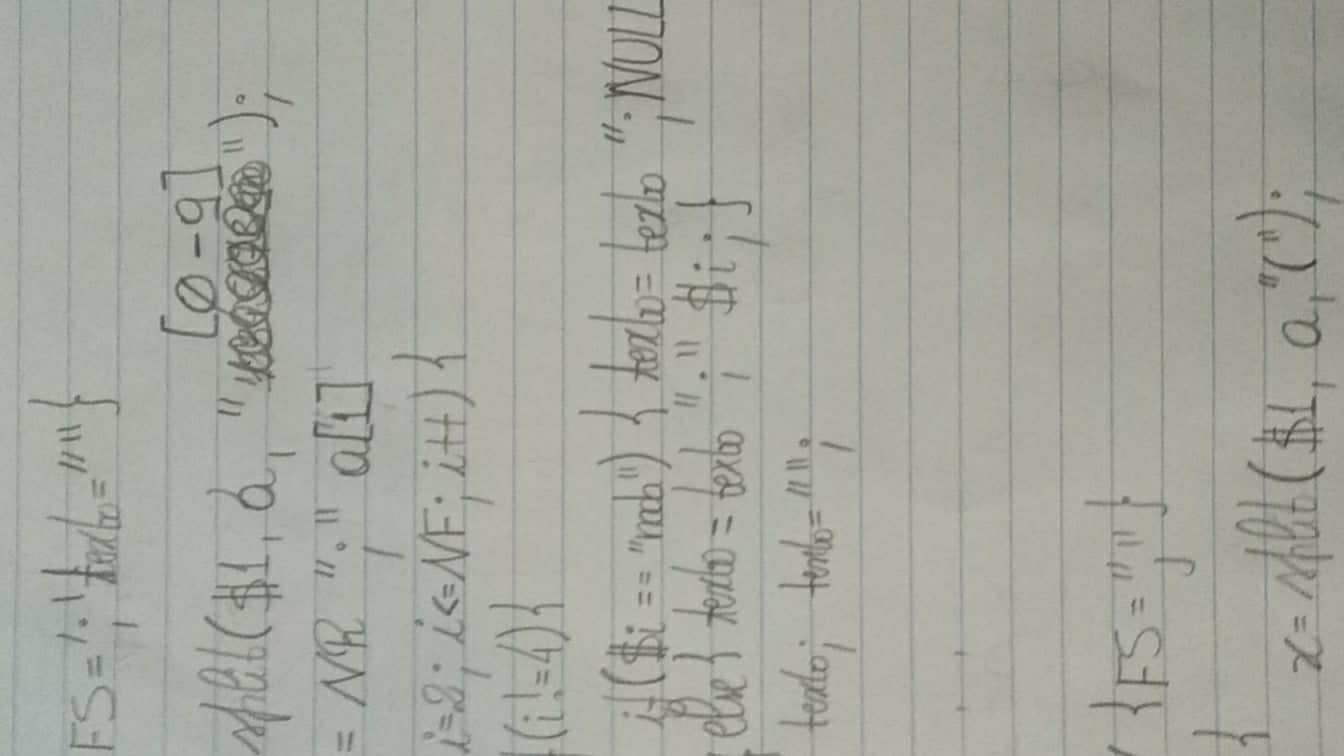 FS=";" texto=""}
[0-9]
split($1, a, "");
= NR ";" a[1]
i=2; i<=NF; i++) {
(i!=4){
if($i == "nada") { texto= texto ";NULL
else { texto = texto ";" $i; }
texto; texto="";
{FS=","}
{
x= split($1, a,"(");